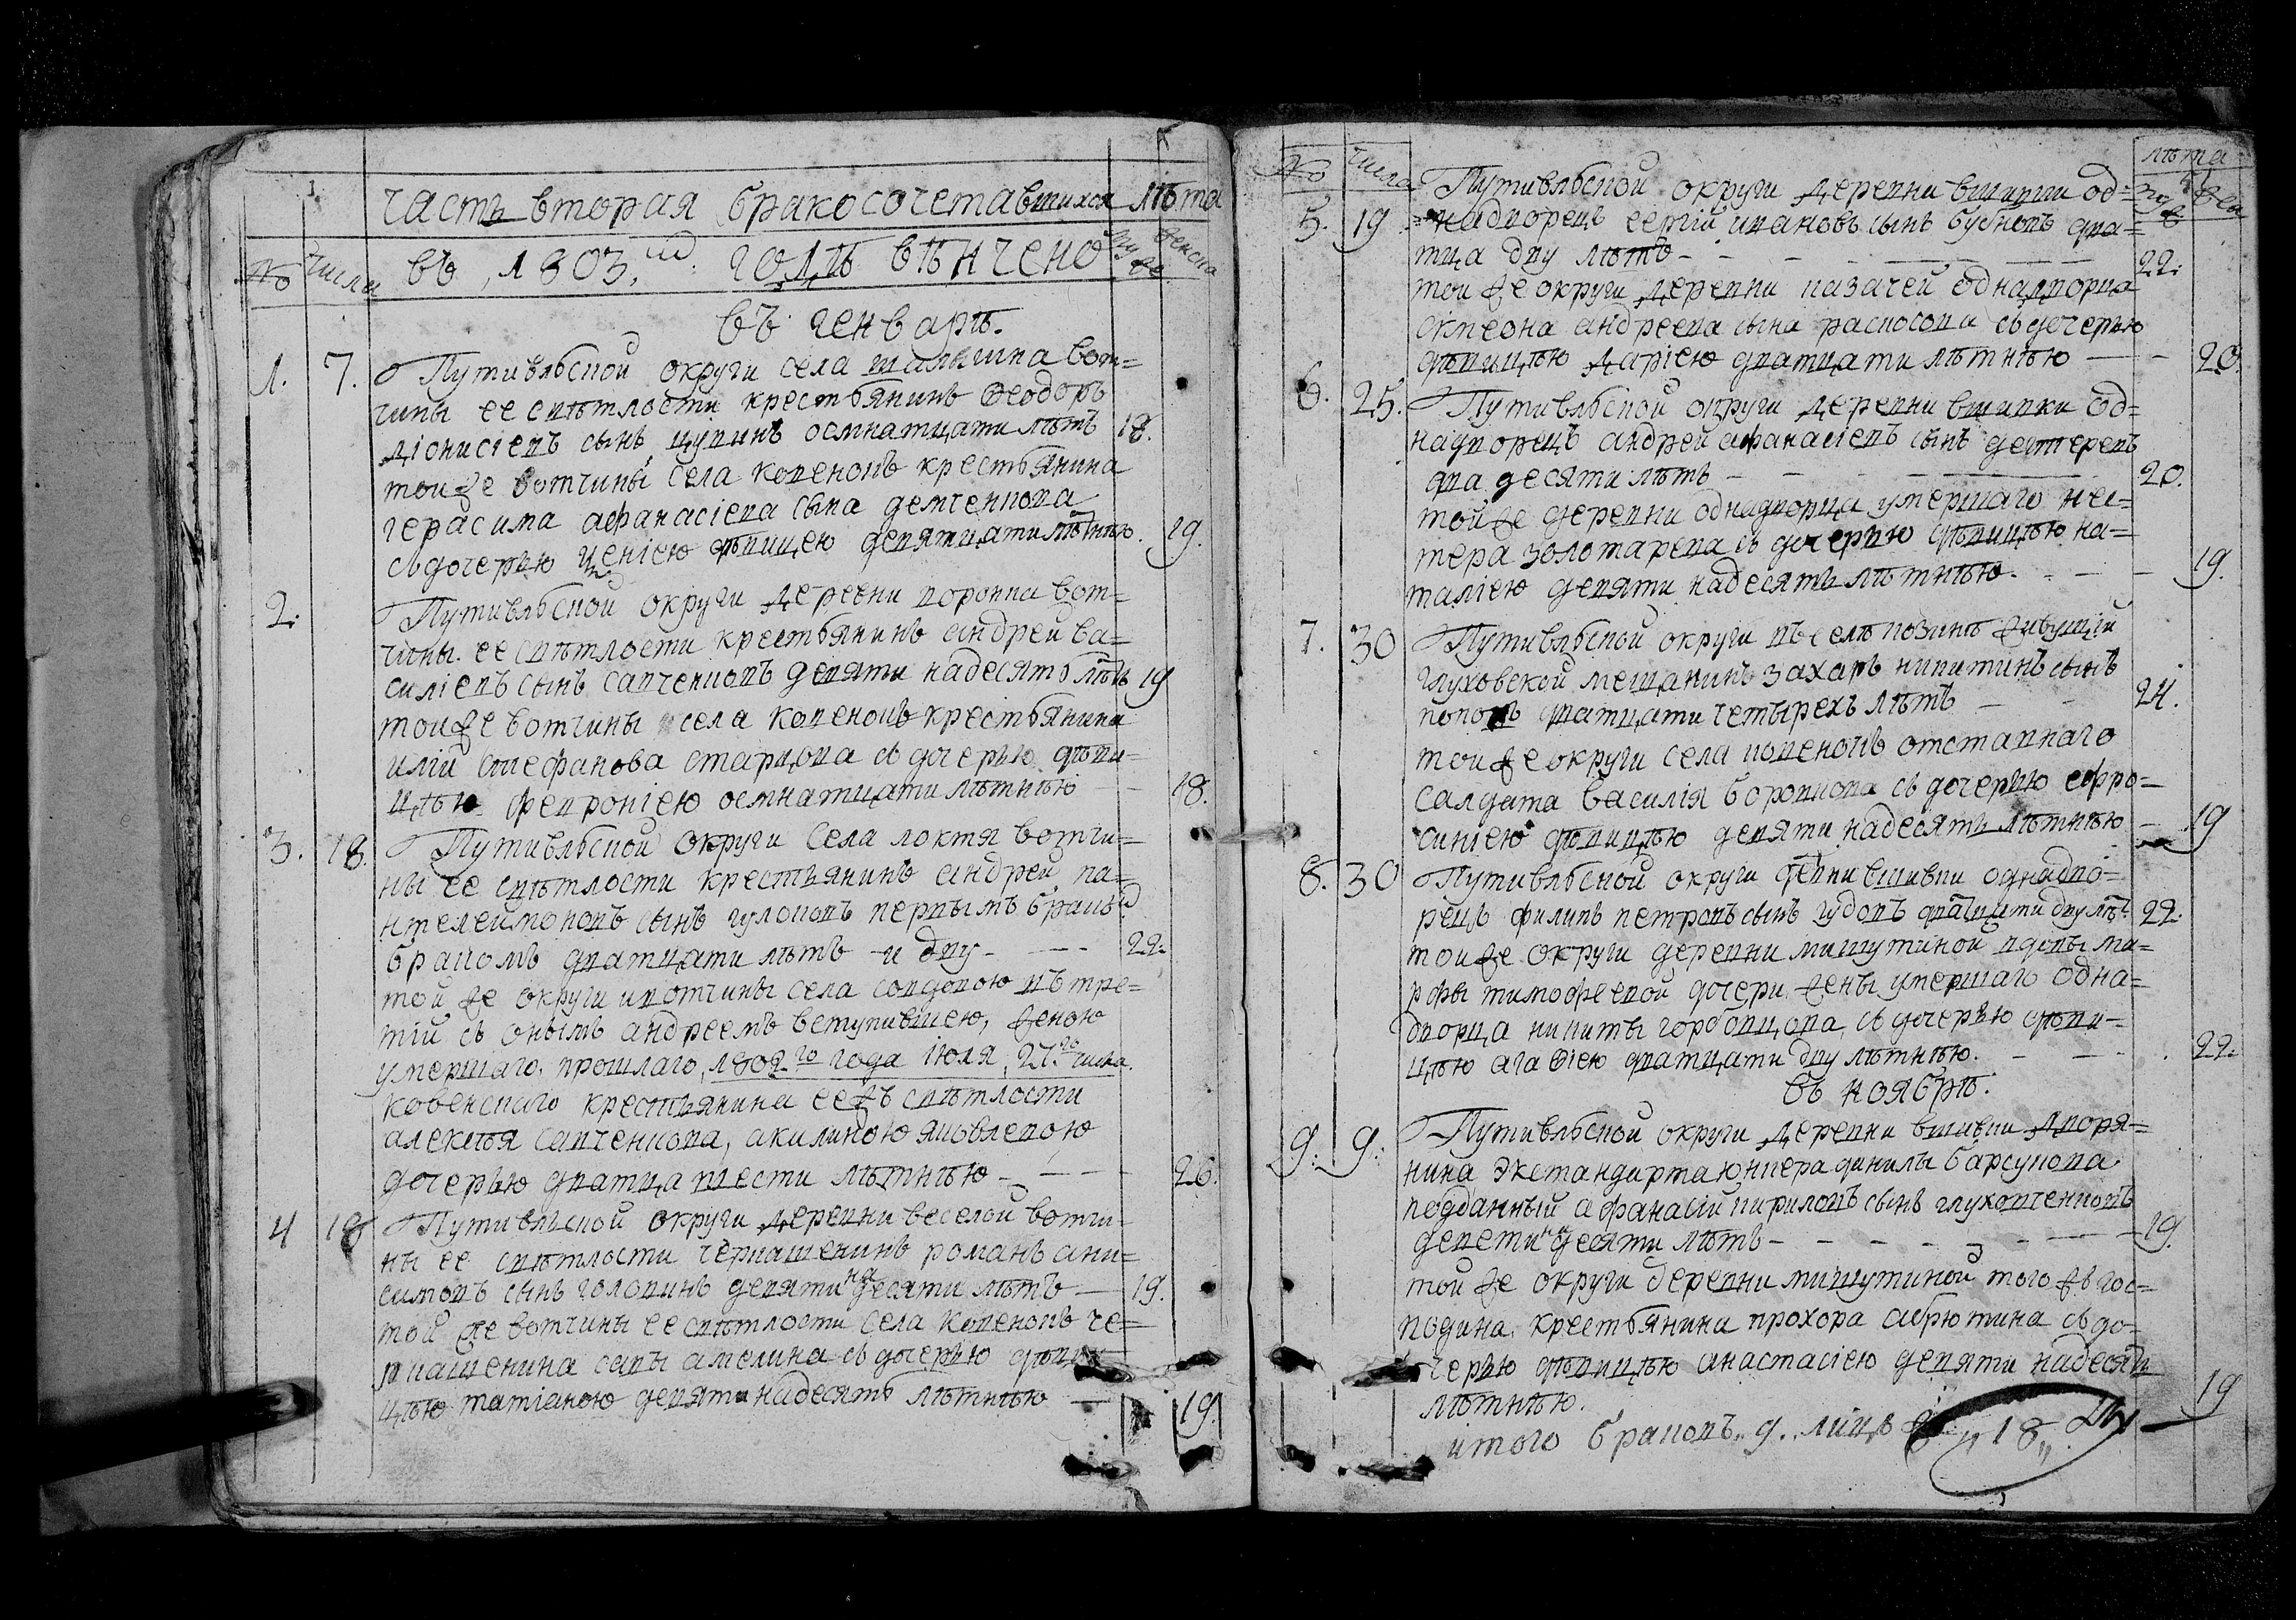 часть вторая бракосочетавшихся лѣта
№ числа въ 1803.мъ годѣ вѣнчено муже женска
въ генварѣ.
1. 7. Путивльской округи села шалыгина вот=
чины ее свѣтлости крестьянинъ Ѳеодоръ
діонисіевъ сынъ цупинъ осмнатцати лѣтъ 18.
тоиже вотчины села ковенокъ крестьянина
герасима афанасіева сына демченкова
съ дочерью девицею девятнатцати лѣтнею. 19.
2. Путивльской округи деревни воронка вот=
чины ее свѣтлости крестьянинъ андрей ва=
силіевъ сынъ савченковъ девяти надесять лѣтъ 19
тоиже вотчины села ковенокъ крестьянина
иліи стефанова старцова съ дочерью дѣви=
цѣю февроніею осмнатцати лѣтнѣю — 18.
3. 18. Путивльской округи села локтя вотчи=
ны ее свѣтлости крестьянинъ андрей па=
нтелеймоновъ сынъ гулоковъ первымъ
бракомъ дватцати лѣтъ и дву - — 22.
той же округи и вотчины села вдовою въ тре=
тій съ онымъ андреемъ вступившею, женою
умершаго, прошлаго, 1802го года іюля, 27.го числа.
ковенскаго крестьянина еежъ свѣтлости
алексѣя савченкова, акилиною яковлевою
дочерью дватца шести лѣтнѣю — 26.
4 18 Путивльской округи деревни веселой вотчи=
ны ее свѣтлости черкашенинъ романъ ани=
симовъ сынъ головинъ девяти на десяти лѣтъ — 19.
той же вотчины ее свѣтлости села ковенокъ че=
ркашенина савы амелина съ дочерью дѣви=
цѣю татіаною девяти надесять лѣтнѣю — 19.
№ числа лѣта
Путивльской округи деревни вшивки од= муже жен
5. 19. надворецъ сергій ивановъ сынъ бубновъ два=
тца дву лѣтъ - - - - 22.
тоиже округи деревни казачей однадворца
симеона андреева сына распопова съ дочерью
дѣвицѣю даріею дватцати лѣтнѣю — 20.
6. 25. Путивльской округи деревни вшивки од=
надворецъ андрей афанасіевъ сынъ дегтеревъ
два десяти лѣтъ — 20.
тойже деревни однадворца умершаго нес=
тера золотарева съ дочерью дѣвицѣю на=
таліею девяти надесять лѣтнѣю. — 19.
7. 30 Путивльской округи въ селѣ козинѣ живущій
глуховской мещанинъ захаръ никитинъ сынъ
поповъ дватцати четырехъ лѣтъ — 24.
тоиже округи села ковенокъ отставнаго
салдата василія боровкова съ дочерью ефро=
синіею дѣвицѣю девяти надесять лѣтнѣю — 19
8. 30 Путивльской округи девни вшивки однадво=
рецъ филипъ петровъ сынъ гудовъ дватцати дву лѣтъ 22.
тоиже округи деревни мишутиной вдовы ма=
рфы тимофеевой дочери, жены умершаго одна=
дворца никиты горбовцова, съ дочерью дѣви=
цѣю агаѳіею дватцати дву лѣтнѣю. — 22.
въ ноябрѣ.
9. 9. Путивльской округи деревни вшивки дворя=
нина экстандартаюнкера данилы барсукова
подданный афанасій кириловъ сынъ глуховченковъ
девети на десяти лѣтъ - - - — 19.
той же округи деревни мишутиной того жъ гос=
подина крестьянина прохора абрютина съ до=
черью дѣвицѣю анастасіею девяти надесять
лѣтнѣю. 19
итого браковъ „9„ лицъ „18„